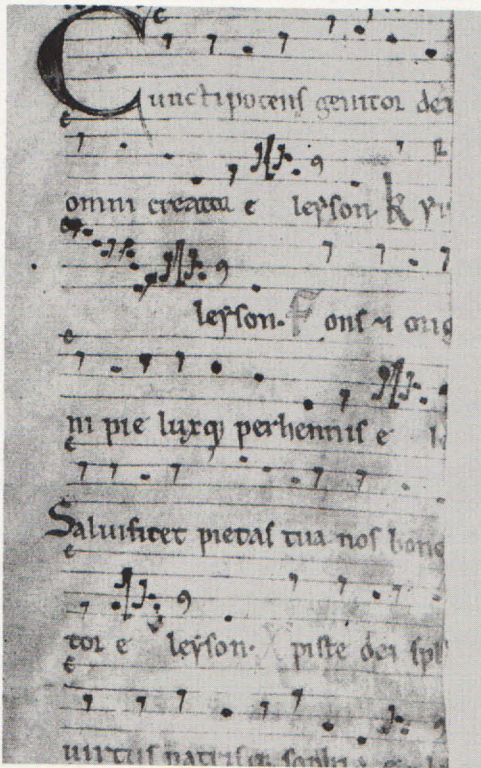 Cunctipotens genitor dei
omni creator e leyson. k yri
leyson. Fons & orig
ni pie luxq perhennis e
Saluificet pietas tua nos bone
tor e leyson. Xpiste dei spl
uirtus patrisq sophia